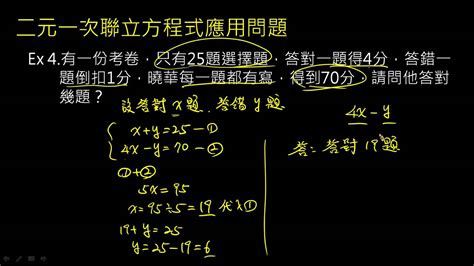 二元一次聯立方程式應用問題
Ex 4.有一份考卷，只有25題選擇題，答對一題得4分，答錯一
題倒扣1分，曉華每一題都有寫，得到70分，請問他答對
幾題？
設答對 x 題，答錯 y 題
x+y=25 —①
4x−y=70 —②
①+②
5x=95
x=95÷5=19 代入①
19+y=25
y=25−19=6
4x−y
答：答對19題